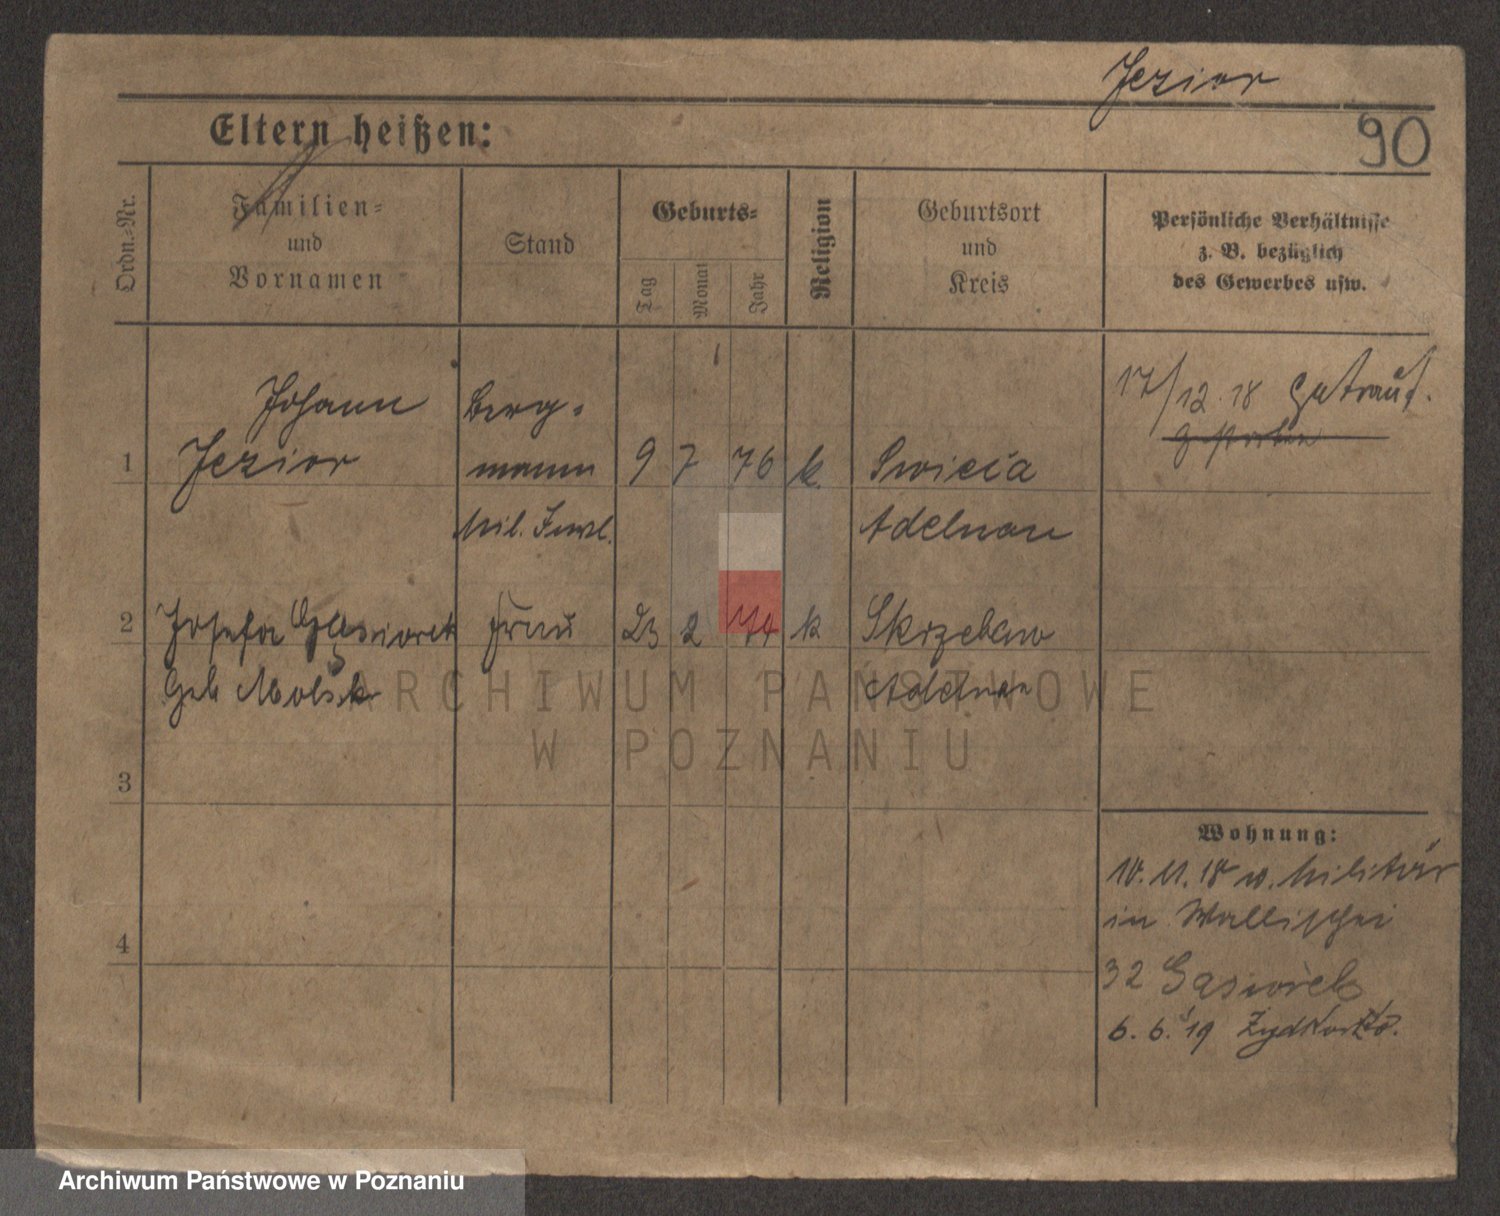 Jezior
90
Eltern heißen:
Ordn.-Nr.
Familien-
und
Vornamen
Stand
Geburts-
Tag
Monat
Jahr
Religion
Geburtsort
und
Kreis
Persönliche Verhältnisse
z. B. bezüglich
des Gewerbes usw.
17/12. 18 Getraut.
gestorben
Johann
Berg-
1 Jezior mann 9 7 76 k. Swieca
Mil. Inval. Adelnau
2 Josefa Gąsiorek Frau 23 2 74 k Skrzebow
Geb Adelnau
ARCHIWUM PAŃSTWOWE
W POZNANIU
3
Wohnung:
10. 11. 18 v. Militär
in Wallischei
4
32 Gąsiorek
6. 6. 19
Archiwum Państwowe w Poznaniu